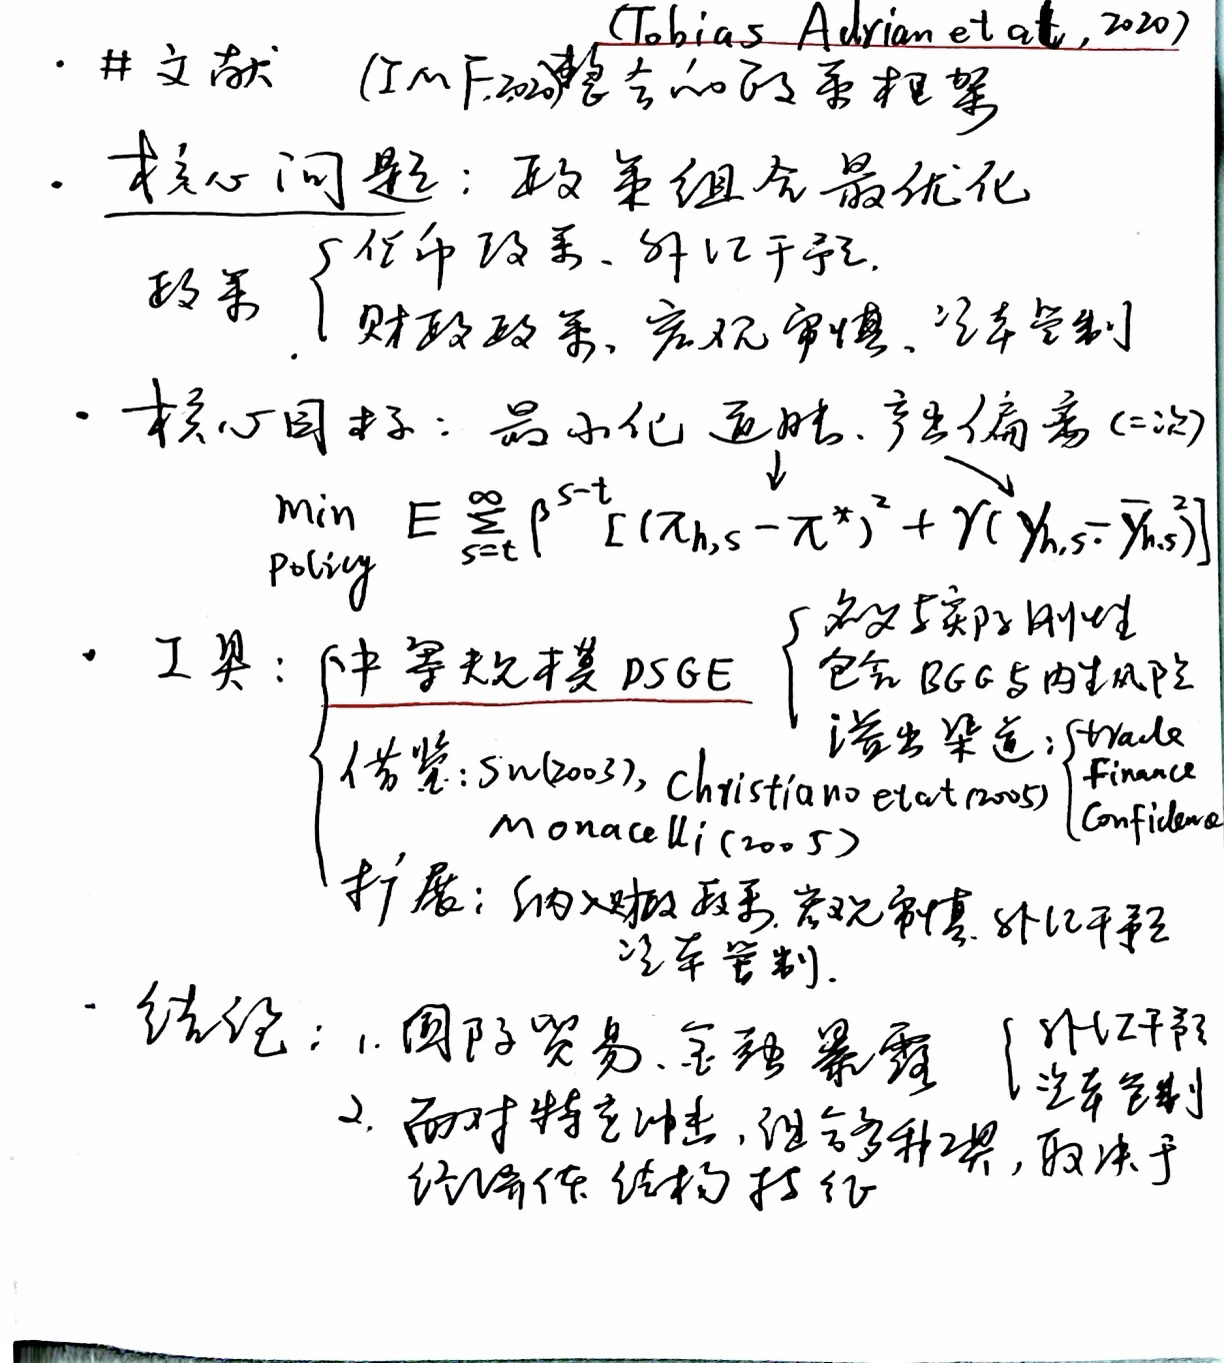 (Tobias Adrian et at, 2020)
· # 文献 (IMF,2020)整合的政策框架
· 核心问题: 政策组合最优化
政策 { 货币政策、外汇干预.
财政政策、宏观审慎、资本管制
· 核心目标: 最小化通胀、产出偏离 (二次)
min E ∑ β^{s-t} [(π_{h,s} - π*)² + γ(y_{h,s} - ȳ_{h,s})²]
policy s=t ∞
· 工具: { 中等规模DSGE { 名义与实际刚性
包含BGG与内生风险
溢出渠道: { trade
finance
Confidence
借鉴: SW(2003), Christiano et at (2005)
Monacelli (2005)
扩展: 纳入财政政策、宏观审慎、外汇干预
资本管制.
· 结论: 1. 国际贸易、金融暴露 { 外汇干预
资本管制
2. 面对特定冲击, 组合多种工具, 取决于
经济体结构特征